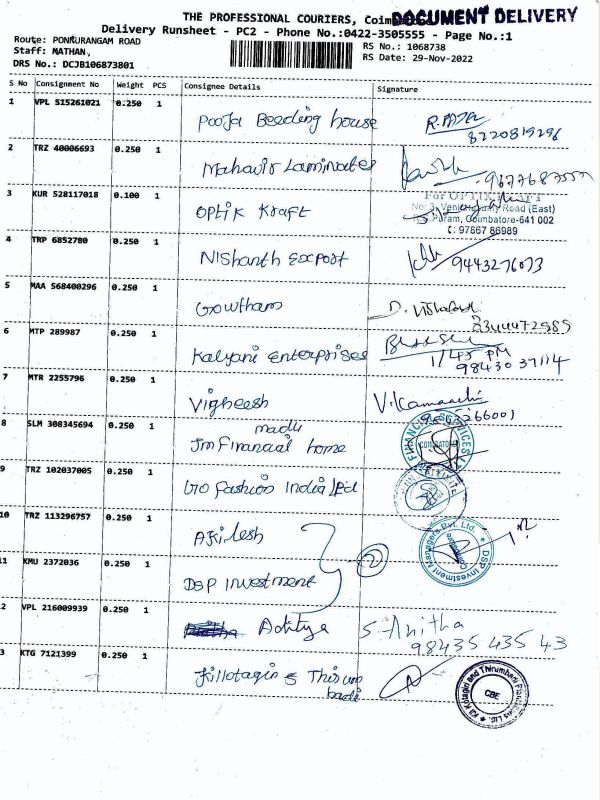 THE PROFESSIONAL COURIERS, DOCUMENT DELIVERY
Delivery Runsheet - PC2 - Phone No.:0422-3505555 - Page No.:1
Route: PONNURANGAM ROAD
Staff: MATHAN,
DRS No.: DCJB106873801
RS No.: 1068738
RS Date: 29-Nov-2022
S No Consignment No Weight PCS Consignee Details Signature
1 VPL 515261021 0.250 1 Pooja Beeding house
8220819296
2 TRZ 40006693 0.250 1 Mahavir Laminates
3 KUR 528117018 0.100 1 OPtik Kraft
Road (East)
Coimbatore-641 002
: 97867 86989
4 TRP 6852780 0.250 1 Nishanth Export
9443276073
5 MAA 568400296 0.250 1 Gowtham
6 MTP 289987 0.250 1 Kalyani Enterprises
1/45 PM
98430 37114
7 MTR 2255796 0.250 1 Vighesh
V.Kamaachi
8 SLM 308345694 0.250 1 Jm Financial home
FINANCIAL SERVICES
9 TRZ 102037005 0.250 1 Go fashion India Ltd
10 TRZ 113296757 0.250 1 Akilesh
2
DSP Investment Managers Pvt. Ltd.
11 KMU 2372036 0.250 1 DSP Investment
2 VPL 216009939 0.250 1 Aditya
S. Anitha
98435 435 43
3 KTG 7121399 0.250 1
CBE